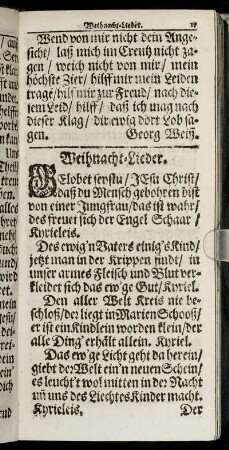 Weihnacht-Lieder. 17
Wend von mir nicht dein Ange-
sicht/ laß mich im Creutz nicht za-
gen/ weich nicht von mir/ mein
höchste Zier/ hilff mir mein Leiden
trage/ hilff mir zur Freud/ nach die-
sem Leid/ hilff/ daß ich mag nach
dieser Klag/ dir ewig dort Lob sa-
gen. Georg Weiß.
Weihnacht-Lieder.
GElobet seystu/ JEsu Christ/
daß du Mensch gebohren bist
von einer Jungfrau/ das ist wahr/
des freuet sich der Engel Schaar/
Kyrieleis.
Des ewig'n Vaters einig's Kind/
jetzt man in der Krippen findt/ in
unser armes Fleisch und Blut ver-
kleidet sich das ew'ge Gut/ Kyriel.
Den aller Welt Kreis nie be-
schloß/ der liegt in Marien Schooß/
er ist ein Kindlein worden klein/ der
alle Ding' erhält allein. Kyriel.
Das ew'ge Licht geht da herein/
giebt der Welt ein'n neuen Schein/
es leucht't wol mitten in der Nacht
uñ uns des Liechtes Kinder macht.
Kyrieleis. Der